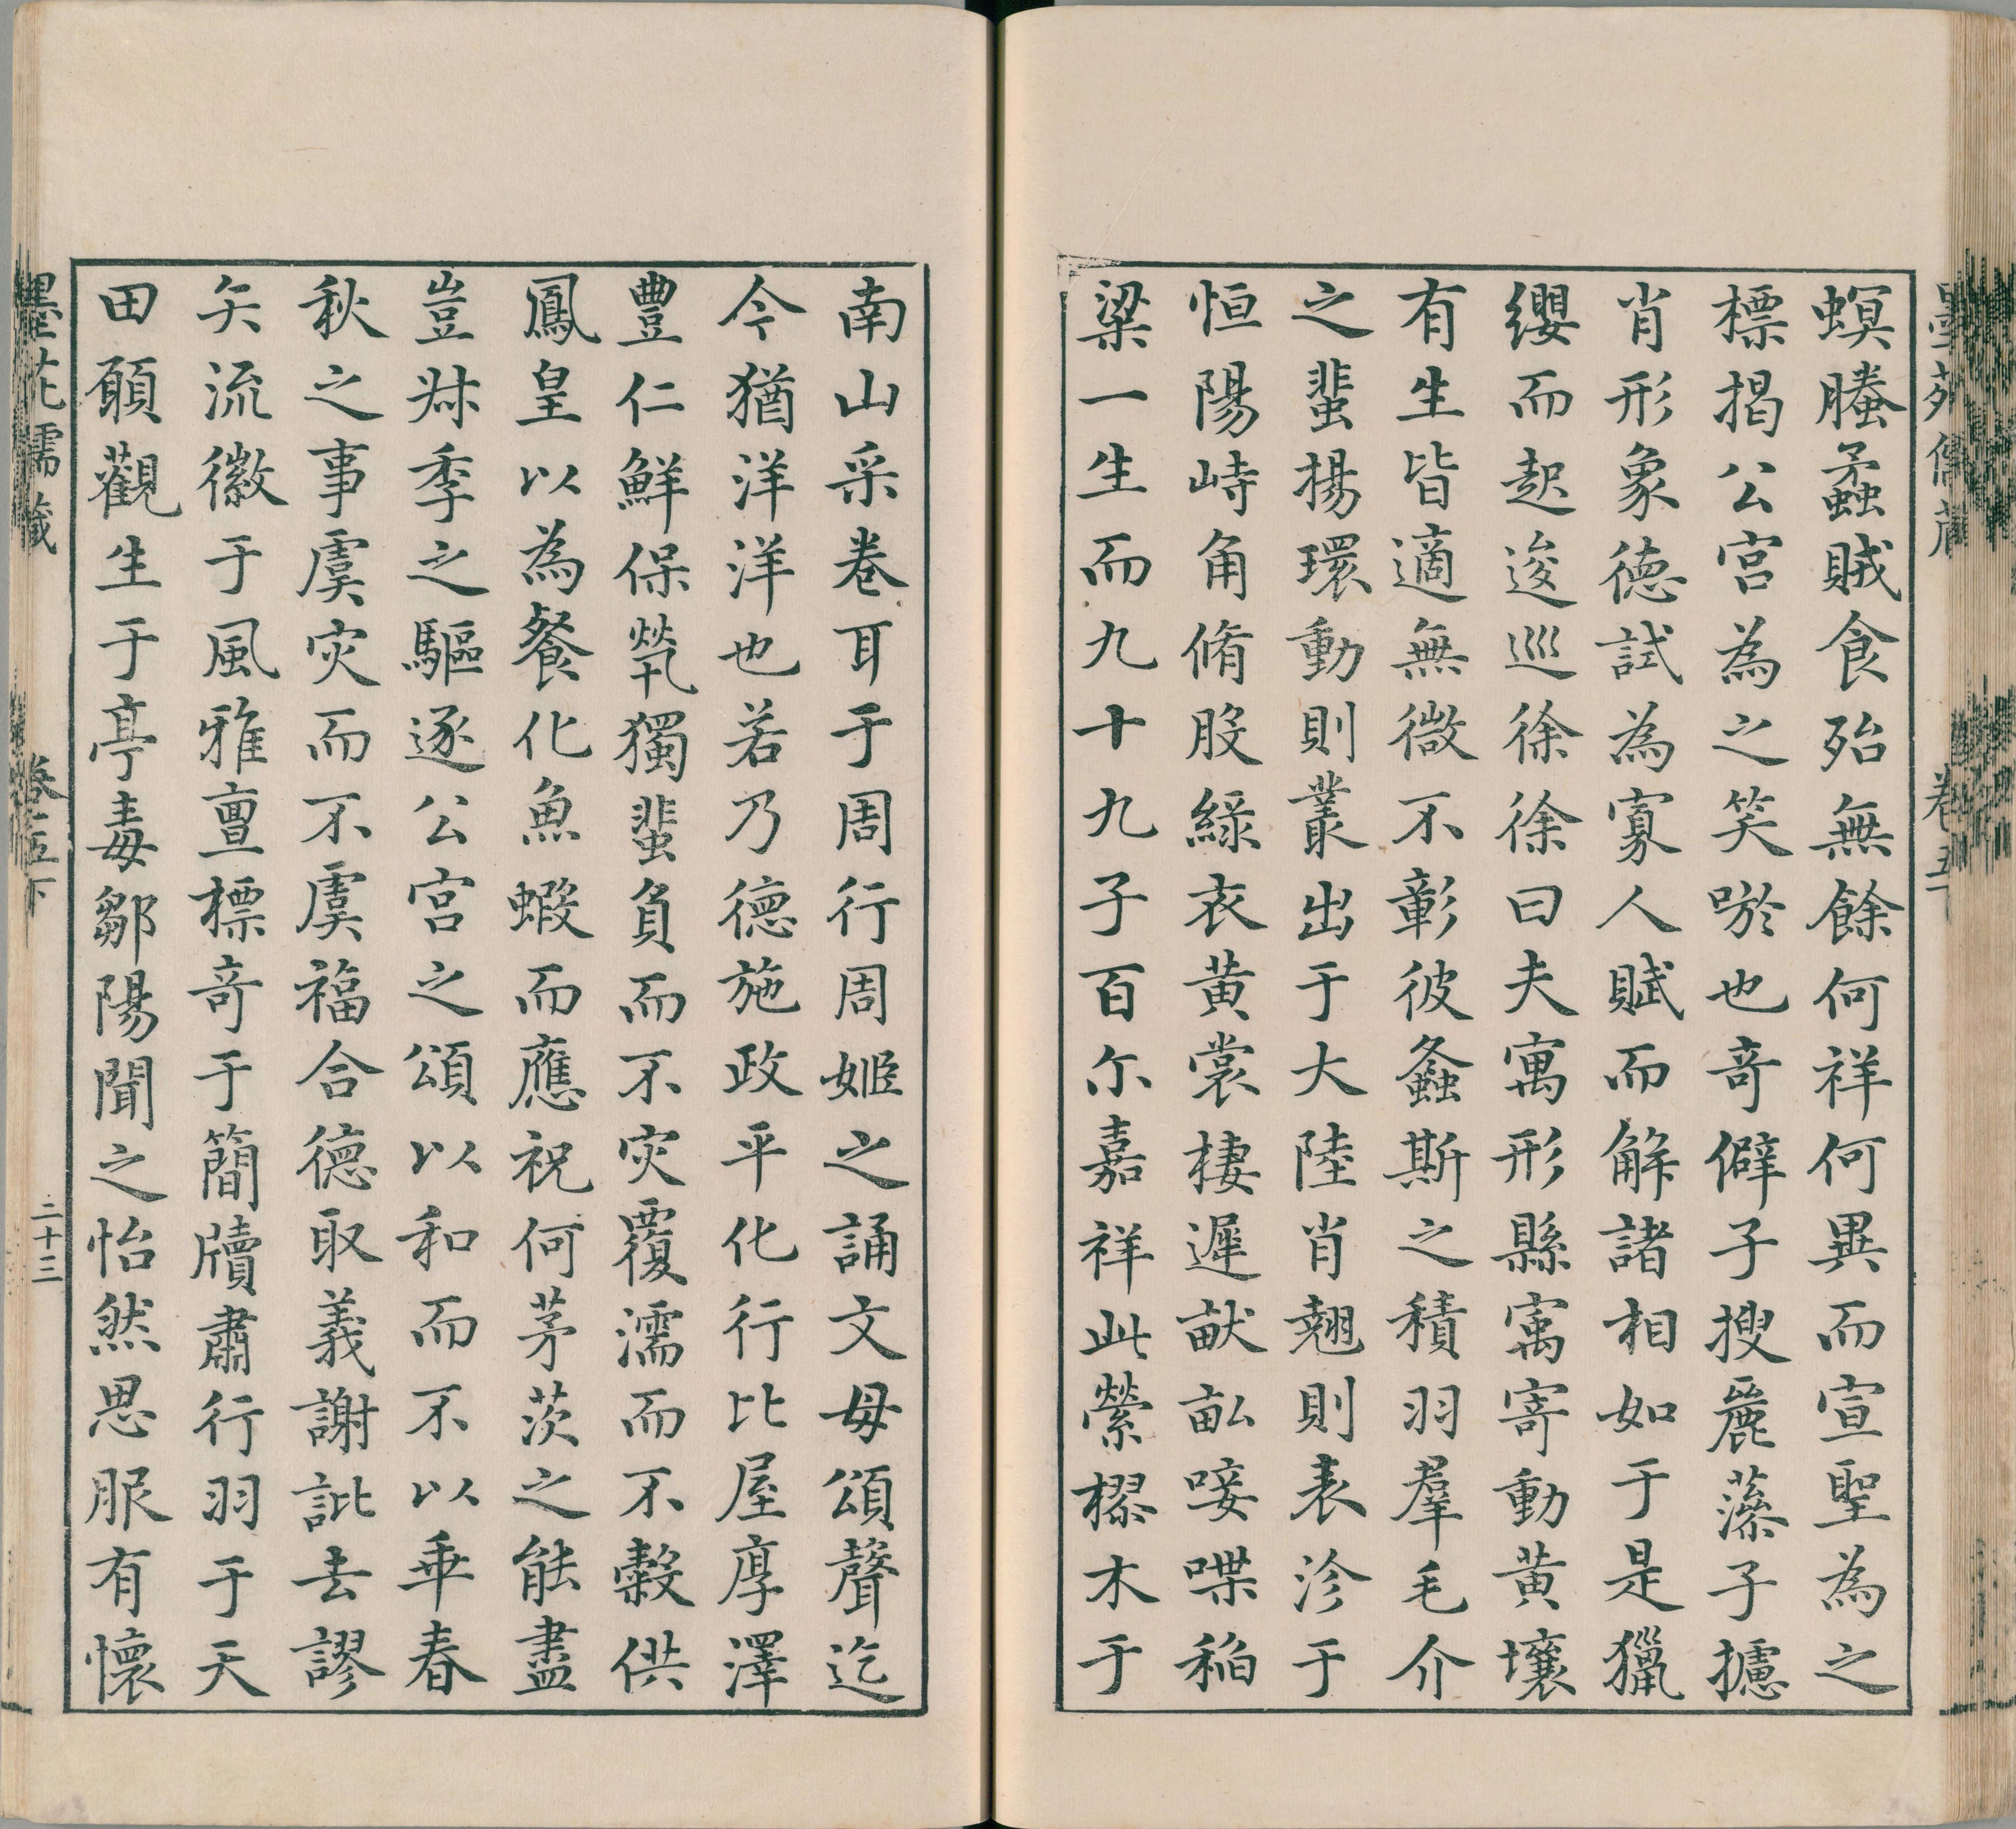 螟螣蟊賊食殆無餘何祥何異而宣聖為之
標揭公宮為之笑唹也竒僻子搜麗藻子攄
肖形象德試為寡人賦而解諸相如于是獵
纓而起逡巡徐徐曰夫寓形縣寓寄動黃壤
有生皆適無微不彰彼螽斯之積羽羣毛介
之蜚揚環動則叢出于大陸肖翹則表沴于
恒陽峙角脩股綠衣黃裳棲遲畎畝唼喋稻
粱一生而九十九子百尓嘉祥此縈樛木于
南山采卷耳于周行周姬之誦文母頌聲迄
今猶洋洋也若乃德施政平化行比屋厚澤
豊仁鮮保㷀獨蜚負而不灾覆濡而不穀供
鳳皇以為餐化魚蝦而應祝何茅茨之能盡
豈叔季之驅逐公宮之頌以和而不以乖春
秋之事虞灾而不虞福合德取義謝訿去謬
矢流徽于風雅亶標竒于簡牘肅行羽于天
田願觀生于亭毒鄒陽聞之怡然思服有懷
墨苑 卷五下
二十三